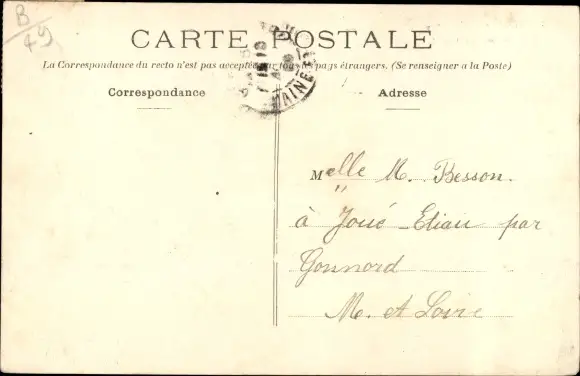 B/49
CARTE POSTALE
La Correspondance du recto n'est pas acceptée par tous les pays étrangers. (Se renseigner a la Poste)
Correspondance
Adresse
Melle M. Besson.
à Joué-Etiau par
Gonnord
M. et Loire